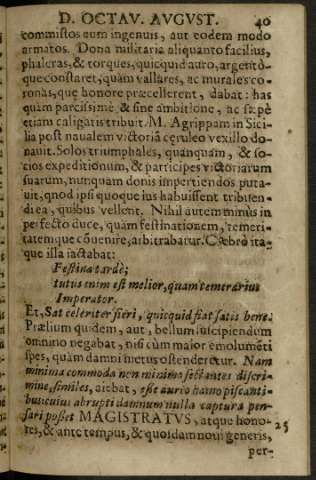 D. OCTAV. AVGVST. 40
commistos eum ingenuis, aut eodem modo
armatos. Dona militaria aliquanto facilius,
phaleras, & torques, quicquid auro, argentò-
que constaret, quàm vallares, ac murales co-
ronas, que honore præcellerent, dabat: has
quàm parcissimè & sine ambitione, ac sæpè
etiam caligatis tribuit. M. Agrippam in Sici-
lia post naualem victoriã cęruleo vexillo do-
nauit. Solos triumphales, quanquàm, & so-
cios expeditionum, & participes victoriarum
suarum, nunquam donis impertiendos puta-
uit, quòd ipsi quoque ius habuissent tribuen-
di ea, quibus vellent. Nihil autem minùs in
perfecto duce, quàm festinationem, temeri-
tatemque cõuenire, arbitrabatur. Crebrò ita-
que illa iactabat:
Festina tardè;
tutus enim est melior, quam temerarius
Imperator.
Et, Sat celeriter fieri, quicquid fiat satis bene.
Prælium quidem, aut, bellum suscipiendum
omnino negabat, nisi cùm maior emolumẽti
spes, quàm damni metus ostenderetur. Nam
minima commoda non minimo sectantes discri-
mine, similes, aiebat, esse aureo hamo piscanti-
bus: cuius abrupti damnum nulla captura pen-
sari posset MAGISTRATVS, atque hono- 25
res, & ante tempus, & quosdam noui generis,
per-